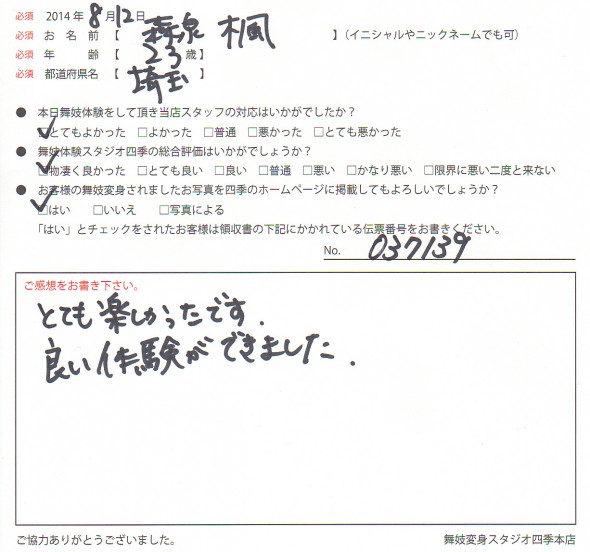 必須 2014年8月12日
必須 お 名 前【 森泉 楓 】(イニシャルやニックネームでも可)
必須 年 齢【 23歳】
必須 都道府県名【 埼玉 】
● 本日舞妓体験をして頂き当店スタッフの対応はいかがでしたか?
☑とてもよかった □よかった □普通 □悪かった □とても悪かった
● 舞妓体験スタジオ四季の総合評価はいかがでしょうか?
☑物凄く良かった □とても良い □良い □普通 □悪い □かなり悪い □限界に悪い二度と来ない
● お客様の舞妓変身されましたお写真を四季のホームページに掲載してもよろしいでしょうか?
☑はい □いいえ □写真による
「はい」とチェックをされたお客様は領収書の下記にかかれている伝票番号をお書きください。
No. 037139
ご感想をお書き下さい。
とても楽しかったです.
良い体験ができました.
ご協力ありがとうございました。 舞妓変身スタジオ四季本店